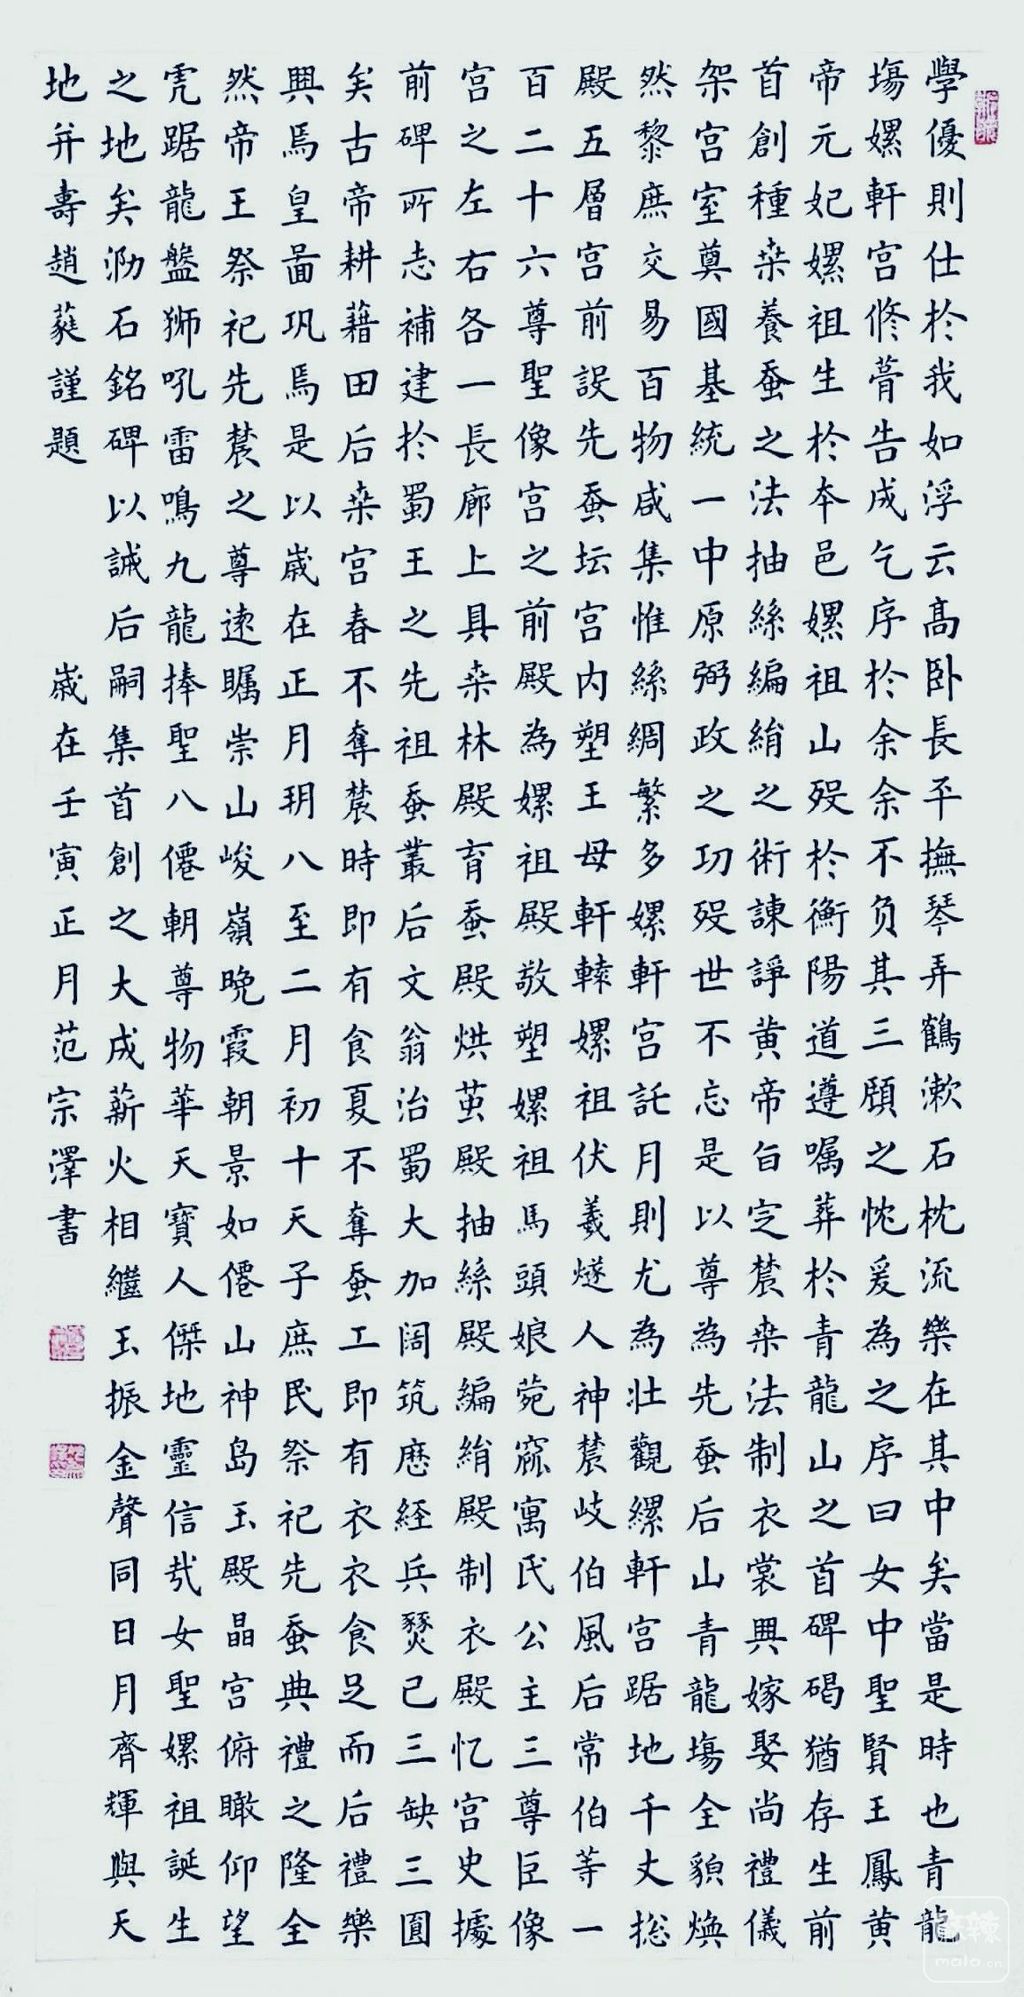 學優則仕於我如浮云高卧長平撫琴弄鶴漱石枕流樂在其中矣當是時也青龍
場嫘軒宫修葺告成乞序於余余不负其三顧之忱爰為之序曰女中聖賢王鳳黄
帝元妃嫘祖生於本邑嫘祖山殁於衡陽道遵嘱葬於青龍山之首碑碣猶存生前
首創種桒養蚕之法抽絲編絹之術諫諍黄帝旨定農桒法制衣裳興嫁娶尚禮儀
架宫室奠國基統一中原弼政之功殁世不忘是以尊為先蚕后山青龍場全貌焕
然黎庶交易百物咸集惟絲綢繁多嫘軒宫託月則尤為壮觀縲軒宫踞地千丈揔
殿五層宫前設先蚕坛宫内塑王母軒轅嫘祖伏羲燧人神農岐伯風后常伯等一
百二十六尊聖像宫之前殿為嫘祖殿敬塑嫘祖馬頭娘菀窳寓氏公主三尊巨像
宫之左右各一長廊上具桒林殿育蚕殿烘茧殿抽絲殿編絹殿制衣殿忆宫史據
前碑所志補建於蜀王之先祖蚕叢后文翁治蜀大加阔筑歷经兵燹已三缺三圓
矣古帝耕藉田后桒宫春不奪農時即有食夏不奪蚕工即有衣衣食足而后禮樂
興焉皇啚巩焉是以嵗在正月玥八至二月初十天子庶民祭祀先蚕典禮之隆全
然帝王祭祀先農之尊逺瞩崇山峻嶺晚霞朝景如僊山神岛玉殿晶宫俯瞰仰望
虎踞龍盤狮吼雷鳴九龍捧聖八僊朝尊物華天寶人傑地靈信哉女聖嫘祖誕生
之地矣泐石銘碑以誡后嗣集首創之大成薪火相繼玉振金聲同日月齊輝與天
地并壽趙蕤謹題
嵗在壬寅正月范宗澤書
麻辣
mala.cn